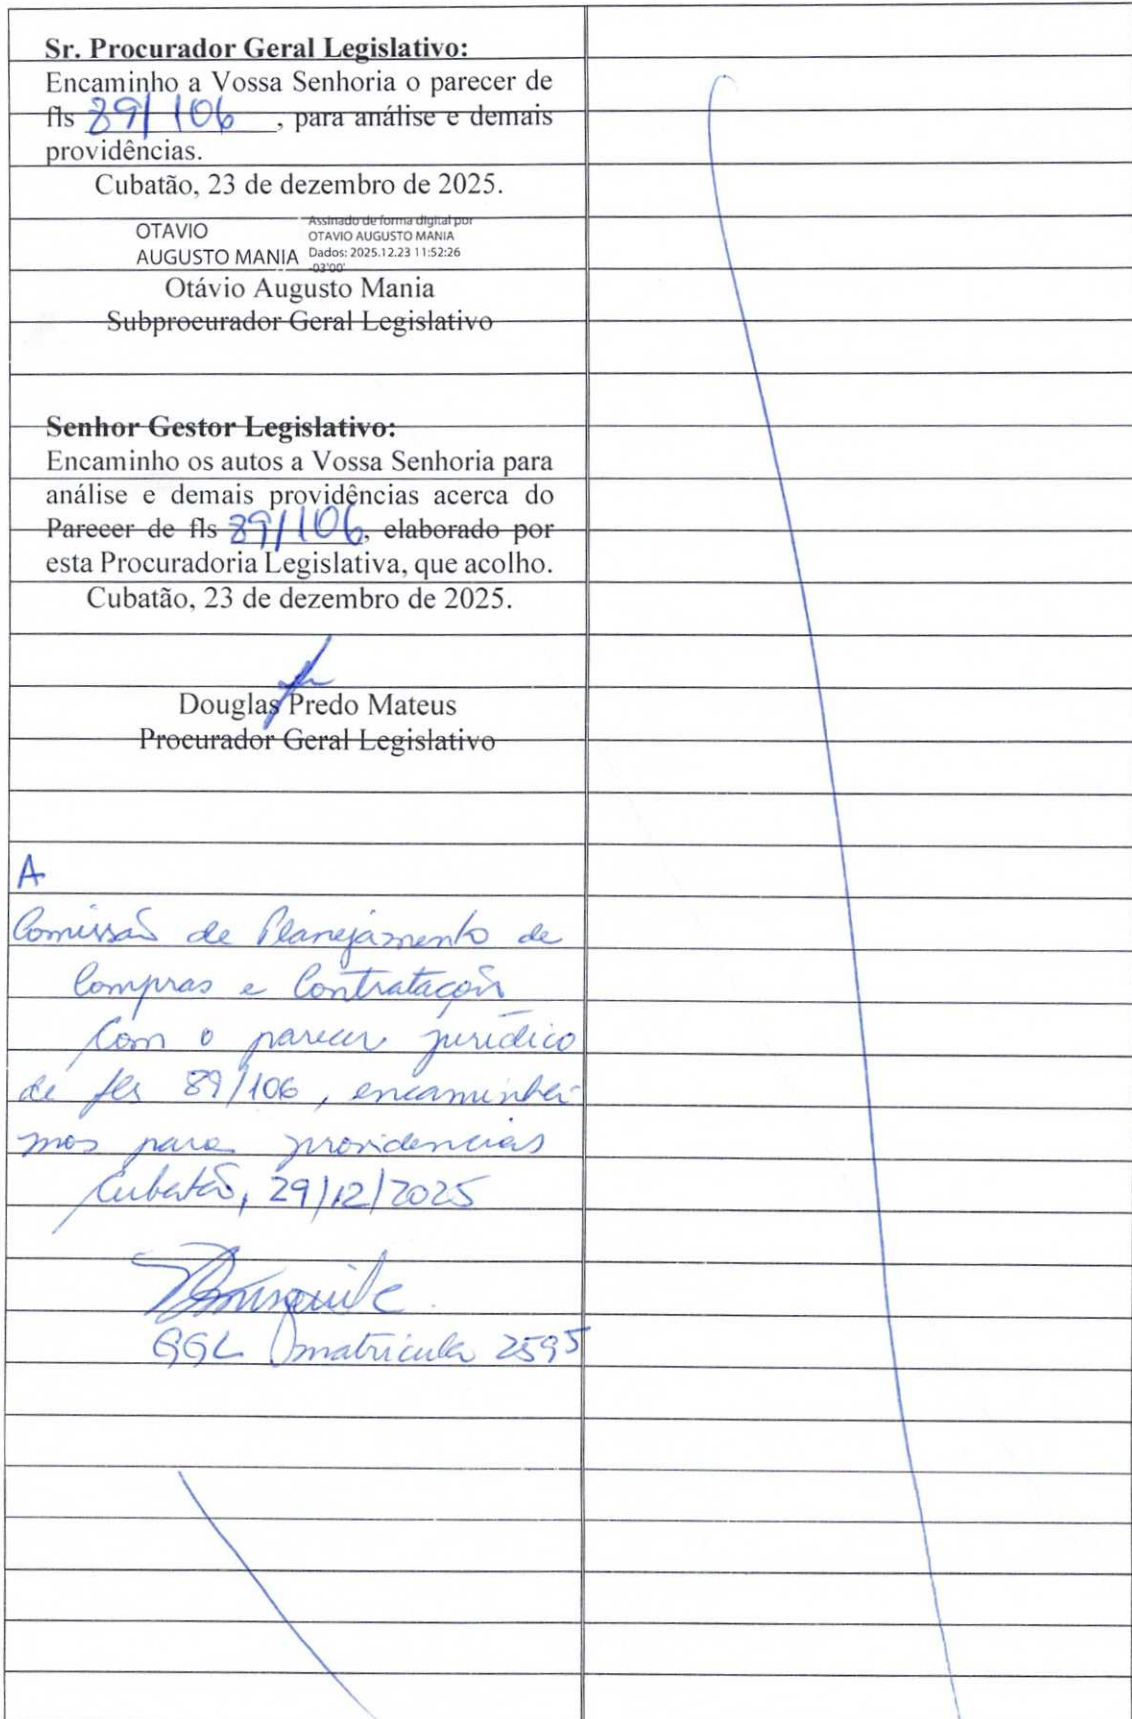 Sr. Procurador Geral Legislativo:
Encaminho a Vossa Senhoria o parecer de
fls 89/106, para análise e demais
providências.
Cubatão, 23 de dezembro de 2025.
OTAVIO
AUGUSTO MANIA
Assinado de forma digital por
OTAVIO AUGUSTO MANIA
Dados: 2025.12.23 11:52:26
-03'00'
Otávio Augusto Mania
Subprocurador Geral Legislativo
Senhor Gestor Legislativo:
Encaminho os autos a Vossa Senhoria para
análise e demais providências acerca do
Parecer de fls 89/106, elaborado por
esta Procuradoria Legislativa, que acolho.
Cubatão, 23 de dezembro de 2025.
Douglas Predo Mateus
Procurador Geral Legislativo
A
Comissão de Planejamento de
Compras e Contratação
Com o parecer jurídico
de fls 89/106, encaminha-
mos para providencias
Cubatão, 29/12/2025
GGL matricula 2595